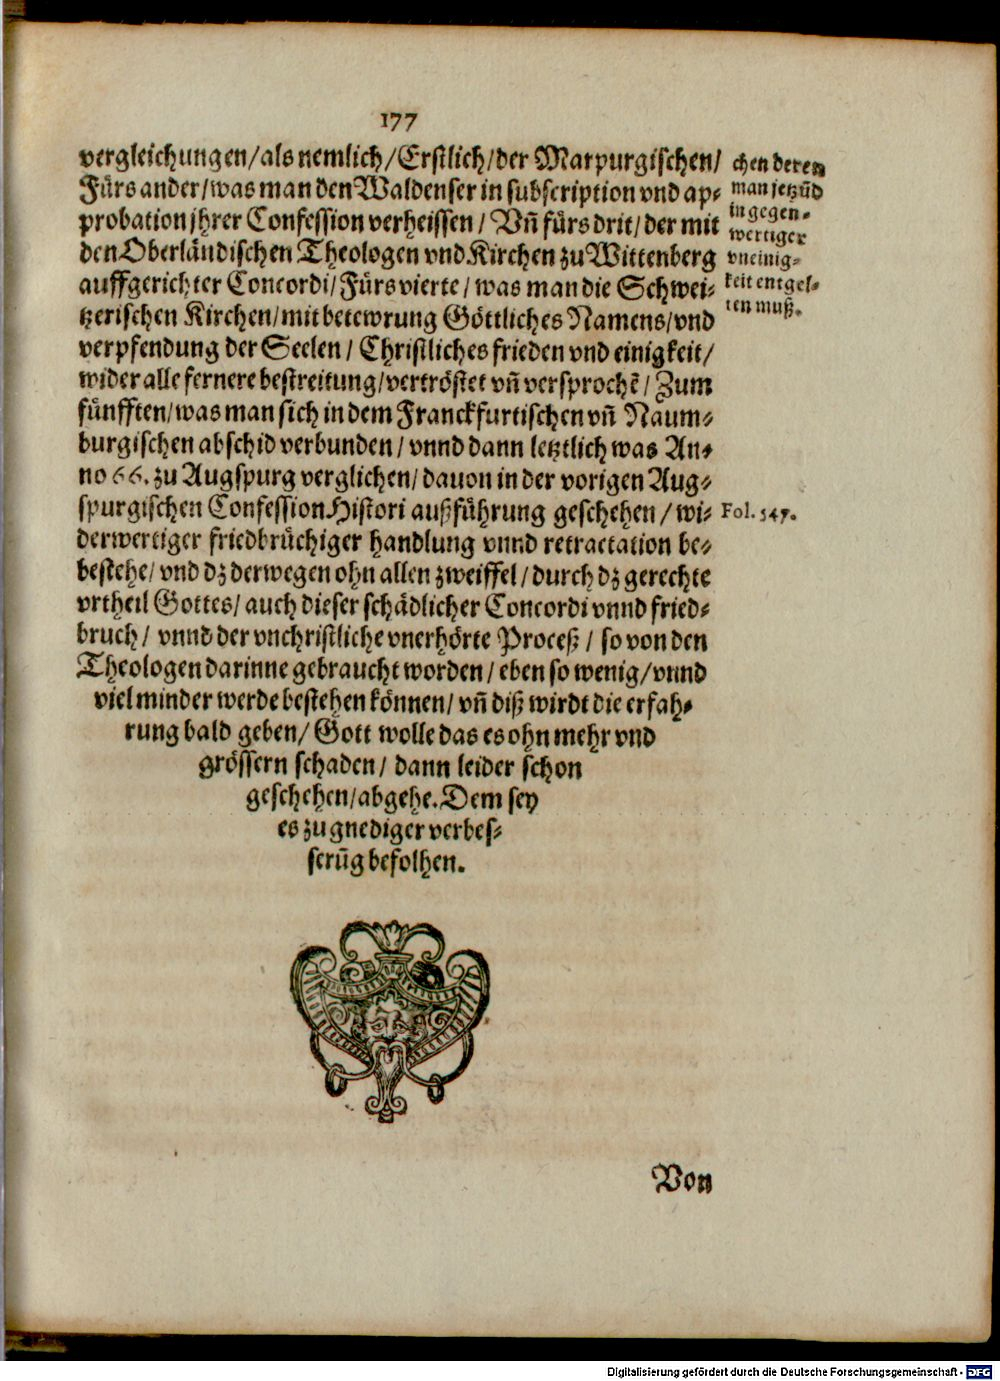 177
vergleichungen/als nemlich/Erstlich/der Marpurgischen/
Fürs ander/was man den Waldenser in subscription vnd ap-
probation jhrer Confession verheissen/ Vñ fürs drit/der mit
den Oberländischen Theologen vnd Kirchen zu Wittenberg
auffgerichter Concordi/Fürs vierte/was man die Schwei-
tzerischen Kirchen/mit betewrung Göttliches Namens/vnd
verpfendung der Seelen/ Christliches frieden vnd einigkeit/
wider alle fernere bestreitung/vertröstet vñ versprochẽ/ Zum
fünfften/was man sich in dem Franckfurtischen vñ Naum-
burgischen abschid verbunden/ vnnd dann letztlich was An-
no 66. zu Augspurg verglichen/dauon in der vorigen Aug-
spurgischen Confession Histori außführung geschehen/ wi-
derwertiger friedbrüchiger handlung vnnd retractation be-
bestehe/ vnd dz derwegen ohn allen zweiffel/durch dz gerechte
vrtheil Gottes/auch dieser schädlicher Concordi vnnd fried-
bruch/ vnnd der vnchristliche vnerhörte Proceß/ so von den
Theologen darinne gebraucht worden/eben so wenig/vnnd
viel minder werde bestehen können/ vñ diß wirdt die erfah-
rung bald geben/ Gott wolle das es ohn mehr vnd
grössern schaden/ dann leider schon
geschehen/abgehe. Dem sey
es zu gnediger verbes-
serũg befolhen.
chen deren
man jetzũd
in gegen-
wertiger
vneinig-
keit entgel-
ten muß.
Fol. 347.
Von
Digitalisierung gefördert durch die Deutsche Forschungsgemeinschaft - DFG